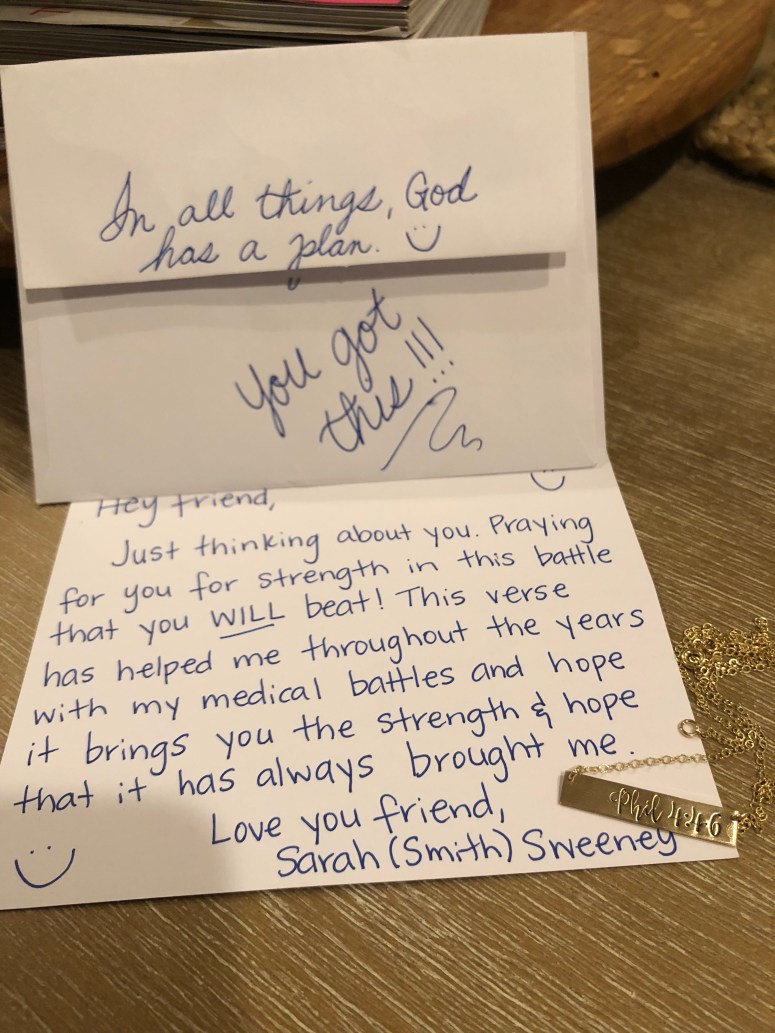 In all things, God
has a plan.
You got
this!!!
Hey friend,
Just thinking about you. Praying
for you for strength in this battle
that you WILL beat! This verse
has helped me throughout the years
with my medical battles and hope
it brings you the strength & hope
that it has always brought me.
Love you friend,
Sarah (Smith) Sweeney
Phil 4:4-6